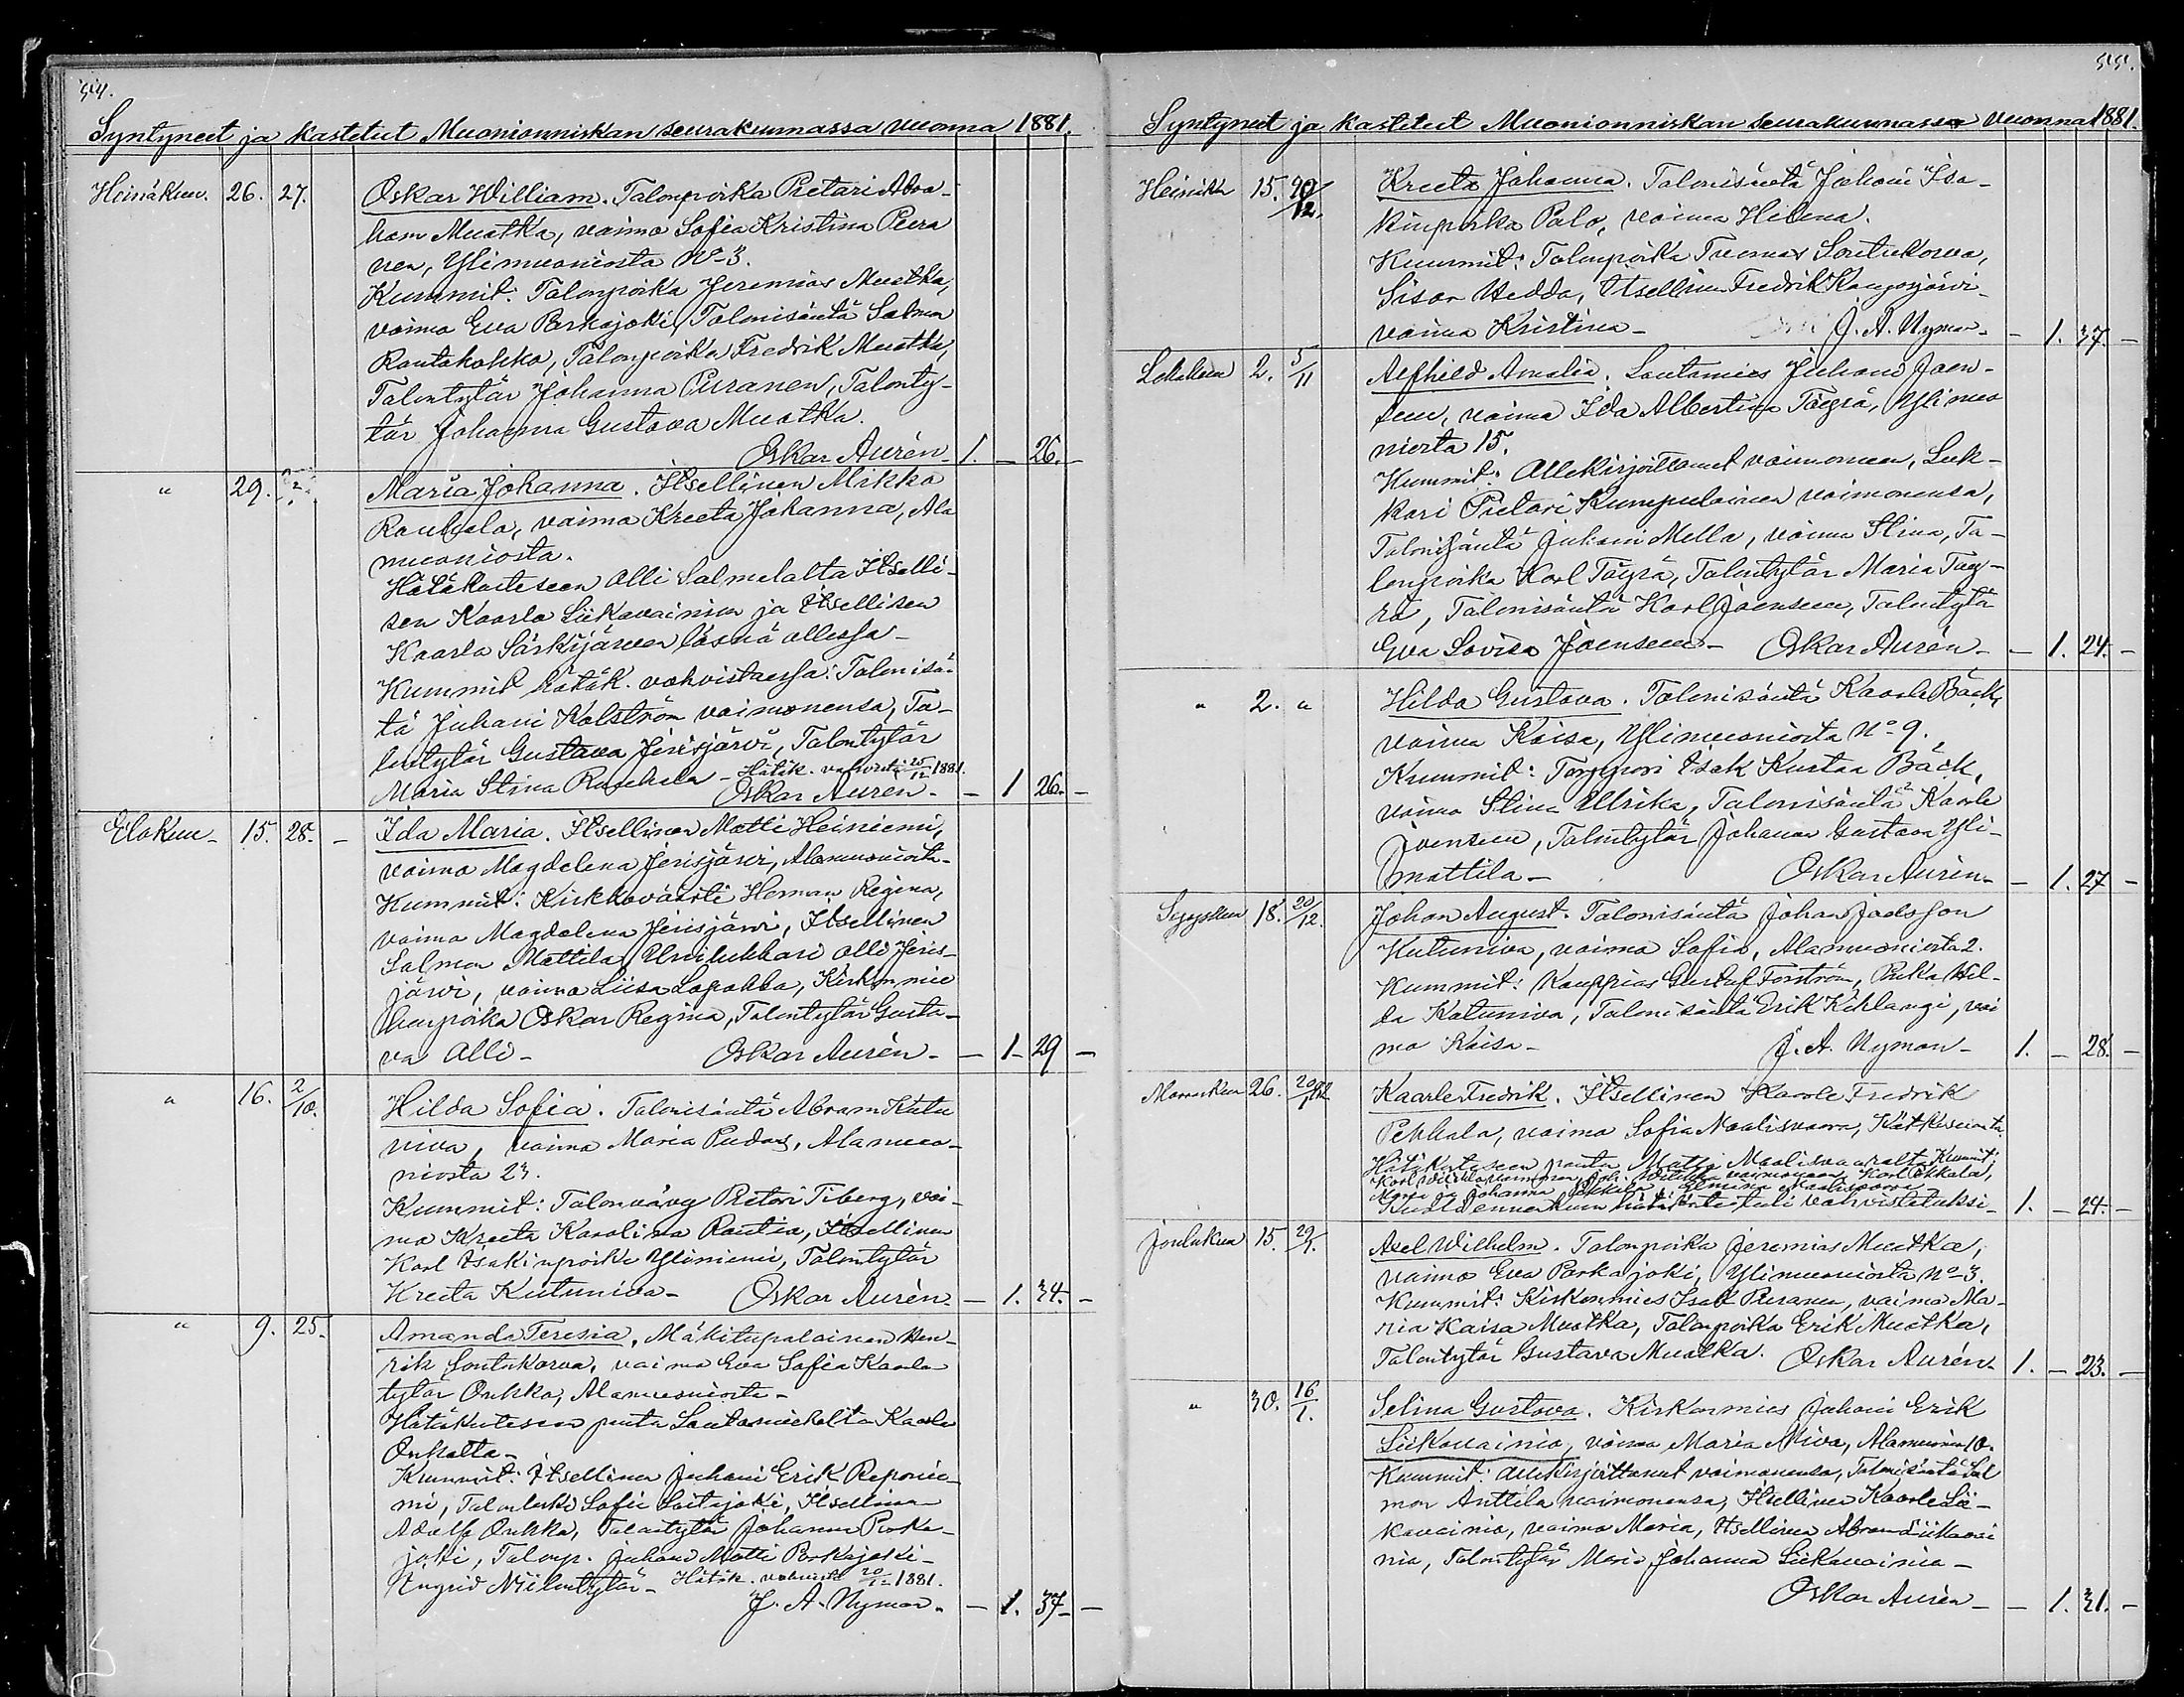 54.
Syntyneet ja kastetut Muonionniskan seurakunnassa vuonna 1881.
Heinäkuu. 26. 27. Oskar William. Talonpoika Pietari Abra-
ham Muotka, vaimo Sofia Kristina Peura
nen, Ylimuoniosta No 3.
Kummit: Talonpoika Jeremias Muotka,
vaimo Eva Parkajoki, Talonisäntä Salmon
Rautakokko, Talonpoika Fredrik Muotka,
Talontytär Johanna Puranen, Talonty-
tär Johanna Gustava Muotka.
Oskar Aurén. 1. – 26. –
" 29. Maria Johanna. Itsellinen Mikko
Rauhala, vaimo Kreeta Johanna, Ala
muoniosta.
Hätäkasteseen Olli Salmelalta Itselli-
sen Kaarlo Siikavainion ja Itsellisen
Kaarlo Särkijärven läsnä ollessa-
Kummit hätäk. vahvistaessa: Talonisän-
tä Juhani Kolström vaimonensa, Ta-
lontytär Gustava Jerisjärvi, Talontytär
Maria Stina Rauhala - Hätäk. vahvisti 25/12 1881.
Oskar Aurén. – 1 26. –
Elokuu – 15. 28. – Ida Maria. Itsellinen Matti Heiniemi,
vaimo Magdalena Jerisjärvi, Alamuoniosta.
Kummit: Kirkkoväärti Herman Regina,
vaimo Magdalena Jerisjärvi, Itsellinen
Salmon Mattila, Unilukkari Olli Jeris-
järvi, vaimo Liisa Lapakko, Kirkonmie
henpoika Oskar Regina, Talontytär Gusta-
va Olli – Oskar Aurén – – 1 – 29 –
" 16. 2/10. Hilda Sofia. Talonisäntä Abram Kutu
niva, vaimo Maria Pudas, Alamuo-
niosta 23.
Kummit: Talonvävy Pietari Tiberg, vai-
mo Kreeta Karolina Rautio, Itsellinen
Karl Isakinpoika Yliniemi, Talontytär
Kreeta Kutuniva – Oskar Aurén. – 1. 34. –
" 9. 25. Amanda Teresia, Mäkitupalainen Hen-
rik Soutukorva, vaimo Eva Sofia Kaarlen
tytär Onkka, Alamuoniosta –
Hätäkasteseen pantu Lautamieheltä Kaarlo
Onkalta –
Kummit: Itsellinen Juhani Erik Reponie-
mi, Talonleski Sofia Saitajoki, Itsellinen
Adolf Onkka, Talontytär Johanna Parka-
joki, Talonp. Juhani Matti Parkajoki –
Ingrid Niilontytär – Hätäk. vahvisti 20/12 1881.
J. A. Nyman. – 1. 37 – –
55.
Syntyneet ja kastetut Muonionniskan seurakunnassa vuonna 1881.
15. 20/12. Kreeta Johanna. Talonisäntä Johani Isa-
kinpoika Palo, vaimo Helena.
Kummit: Talonpoika Tuomas Soutukorva,
Sisar Hedda, Itsellinen Fredrik Kangosjärvi-
vaimo Kristina – J. A. Nyman – – 1. 37. –
Lokakuu 2. 5/11 Alfhild Amalia. Lautamies Juhani Joen-
suu, vaimo Ida Albertina Täyrä, Ylimuo
niosta 15.
Kummit: Allekirjoittanut vaimoneen, Luk-
kari Pietari Kumpulainen vaimonensa,
Talonisäntä Juhani Mella, vaimo Stina, Ta-
lonpoika Karl Täyrä, Talontytär Maria Täy-
rä, Talonisäntä Karl Joensuu, Talontytä
Eva Lovisa Joensuu – Oskar Aurén – – 1. 24. –
" 2. " Hilda Gustava. Talonisäntä Kaarle Bäck,
vaimo Kaisa, Ylimuoniosta No 9.
Kummit: Torppari Isak Kustaa Bäck,
vaimo Stina Ulrika, Talonisäntä Kaarle
Joensuu, Talontytär Johanna Gustava Yli-
mattila – Oskar Aurén – – 1. 27 –
Syyskuu 18. 20/12. Johan August. Talonisäntä Johan
Kutuniva, vaimo Sofia, Alamuoniosta 2.
Kummit: Kauppias Gustaf Forström, Piika Hil-
da Kutuniva, Talonisäntä Erik Kihlangi, vai
mo Kaisa – J. A. Nyman – 1. – 28. –
Marraskuu 26. Kaarle Fredrik. Itsellinen Kaarle Fredrik
Pekkala, vaimo Sofia Maalisvaara, Kätkesuanto.
Hätäkasteseen pantu Matti Maalisvaaralta. Kummit:
Karl Okkala,
Maria ja Johanna Maalisvaara –
Kuoli ennenkuin hätäkaste tuli vahvistetuksi – 1. – 24. –
Joulukuu 15. 29/1. Axel Wilhelm. Talonpoika Jeremias Muotka,
vaimo Eva Parkajoki, Ylimuoniosta No 3.
Kummit: Kirkonmies Isak Puranen, vaimo Ma-
ria Kaisa Muotka, Talonpoika Erik Muotka,
Talontytär Gustava Muotka. Oskar Aurén 1. – 23. –
" 30. 16/1. Selina Gustava. Kirkonmies Juhani Erik
Siikavainio, vaimo Maria Niva, Alamuonio 10.
Kummit: allekirjoittanut vaimonensa, Talonisäntä Sal
mon Anttila vaimonensa, Itsellinen Kaarle Sii-
kavainio, vaimo Maria, Itsellinen Abram Siikavai
nio, Talontytär Maria Johanna Siikavainio –
Oskar Aurén – – 1. 31. –